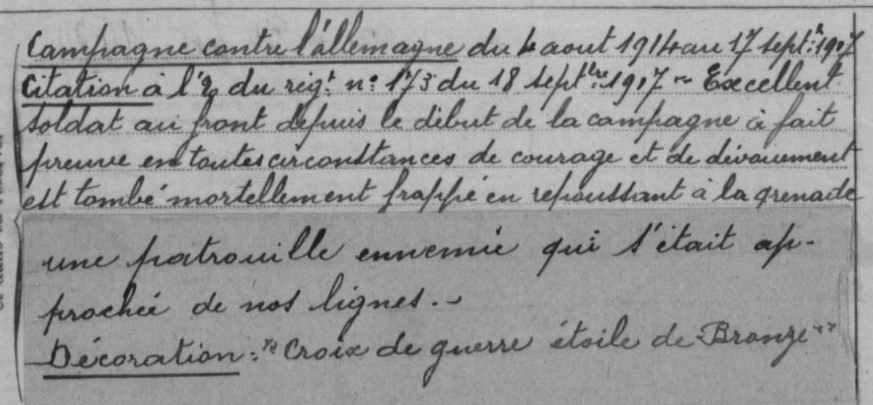 Campagne contre l'allemagne du 4 aout 1914 au 17 septbre 1917
Citation à l'O. du régt no 173 du 18 septbre 1917 ~ Excellent
soldat au front depuis le début de la campagne à fait
preuve en toutes circonstances de courage et de dévouement
est tombé mortellement frappé en repoussant à la grenade
une patrouille ennemie qui s'était ap-
prochée de nos lignes.-
Décoration : "Croix de guerre étoile de Bronze"